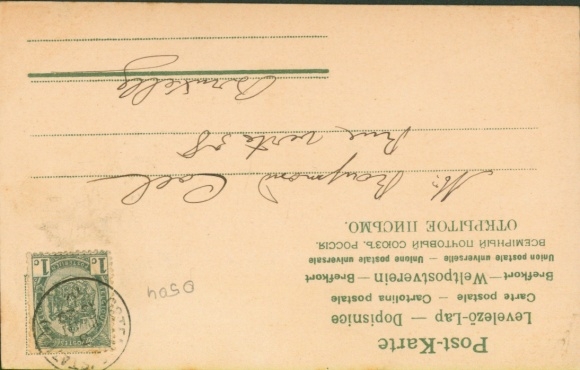 Post-Karte
Levelező-Lap — Dopisnice
Carte postale — Cartolina postale
Brefkort — Weltpostverein — Brefkort
Union postale universelle — Unione postale universale
ВСЕМІРНЫЙ ПОЧТОВЫЙ СОЮЗЪ. РОССІЯ.
ОТКРЫТОЕ ПИСЬМО.
Mr. Raymond
Rue verte 58
Bruxelles
D504
1c 1c